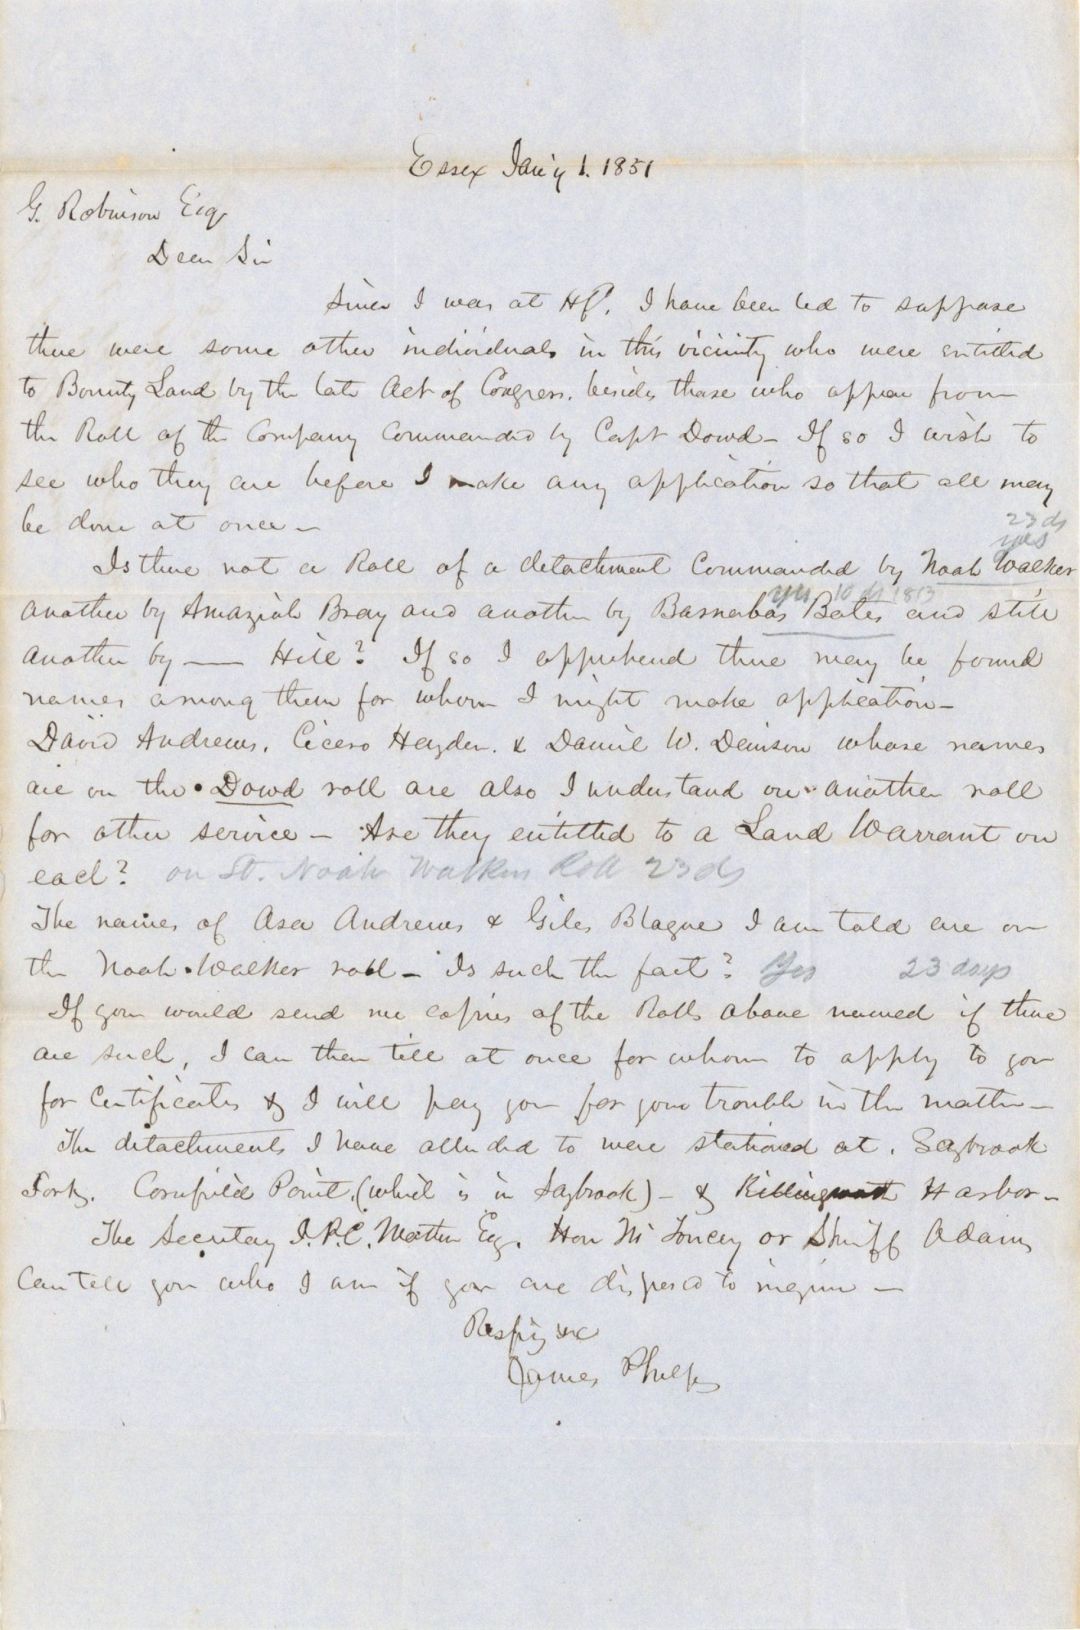 Essex Jan'y 1. 1851
G. Robinson Esq
Dear Sir
Since I was at Hfd. I have been led to suppose
there were some other individuals in this vicinity who were entitled
to Bounty Land by the late Act of Congress, besides those who appear from
the Roll of the Company Commanded by Capt Dowd - If so I wish to
see who they are before I make any application so that all may
be done at once -
23 ds
yes
Is there not a Roll of a detachment Commanded by Noah Walker
yes 10 ds 1813
another by Amaziah Bray and another by Barnabas Bates and still
another by —— Hill? If so I apprehend there may be found
names among them for whom I might make application -
David Andrews, Cicero Hayden, & Daniel W. Denison whose names
are on the Dowd roll are also I understand on another roll
for other service - Are they entitled to a Land Warrant on
each? on Lt. Noah Walkers Roll 23 ds
The names of Asa Andrews & Giles Blague I am told are on
the Noah Walker roll - Is such the fact? Yes 23 days
If you would send me copies of the Rolls above named if there
are such, I can then tell at once for whom to apply to you
for Certificates & I will pay you for your trouble in the matter -
The detachments I have alluded to were stationed at Saybrook
Fort, Cornfield Point, (which is in Saybrook) - & Killingworth Harbor -
The Secretary J.P.C. Mather Esq. Hon Mr Toucey or Sheriff Adams
Can tell you who I am if you are disposed to inquire -
Respy &c
James Phelps